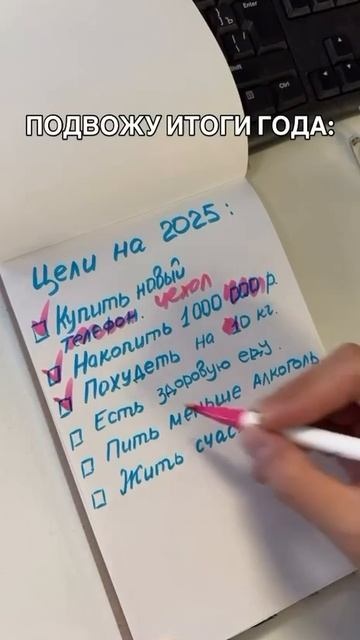 ПОДВОЖУ ИТОГИ ГОДА:
Цели на 2025:
Купить новый
телефон. чехол
Накопить 1000 000 р.
Похудеть на 10 кг.
Есть здоровую еду.
Пить меньше алкоголь
Жить счас